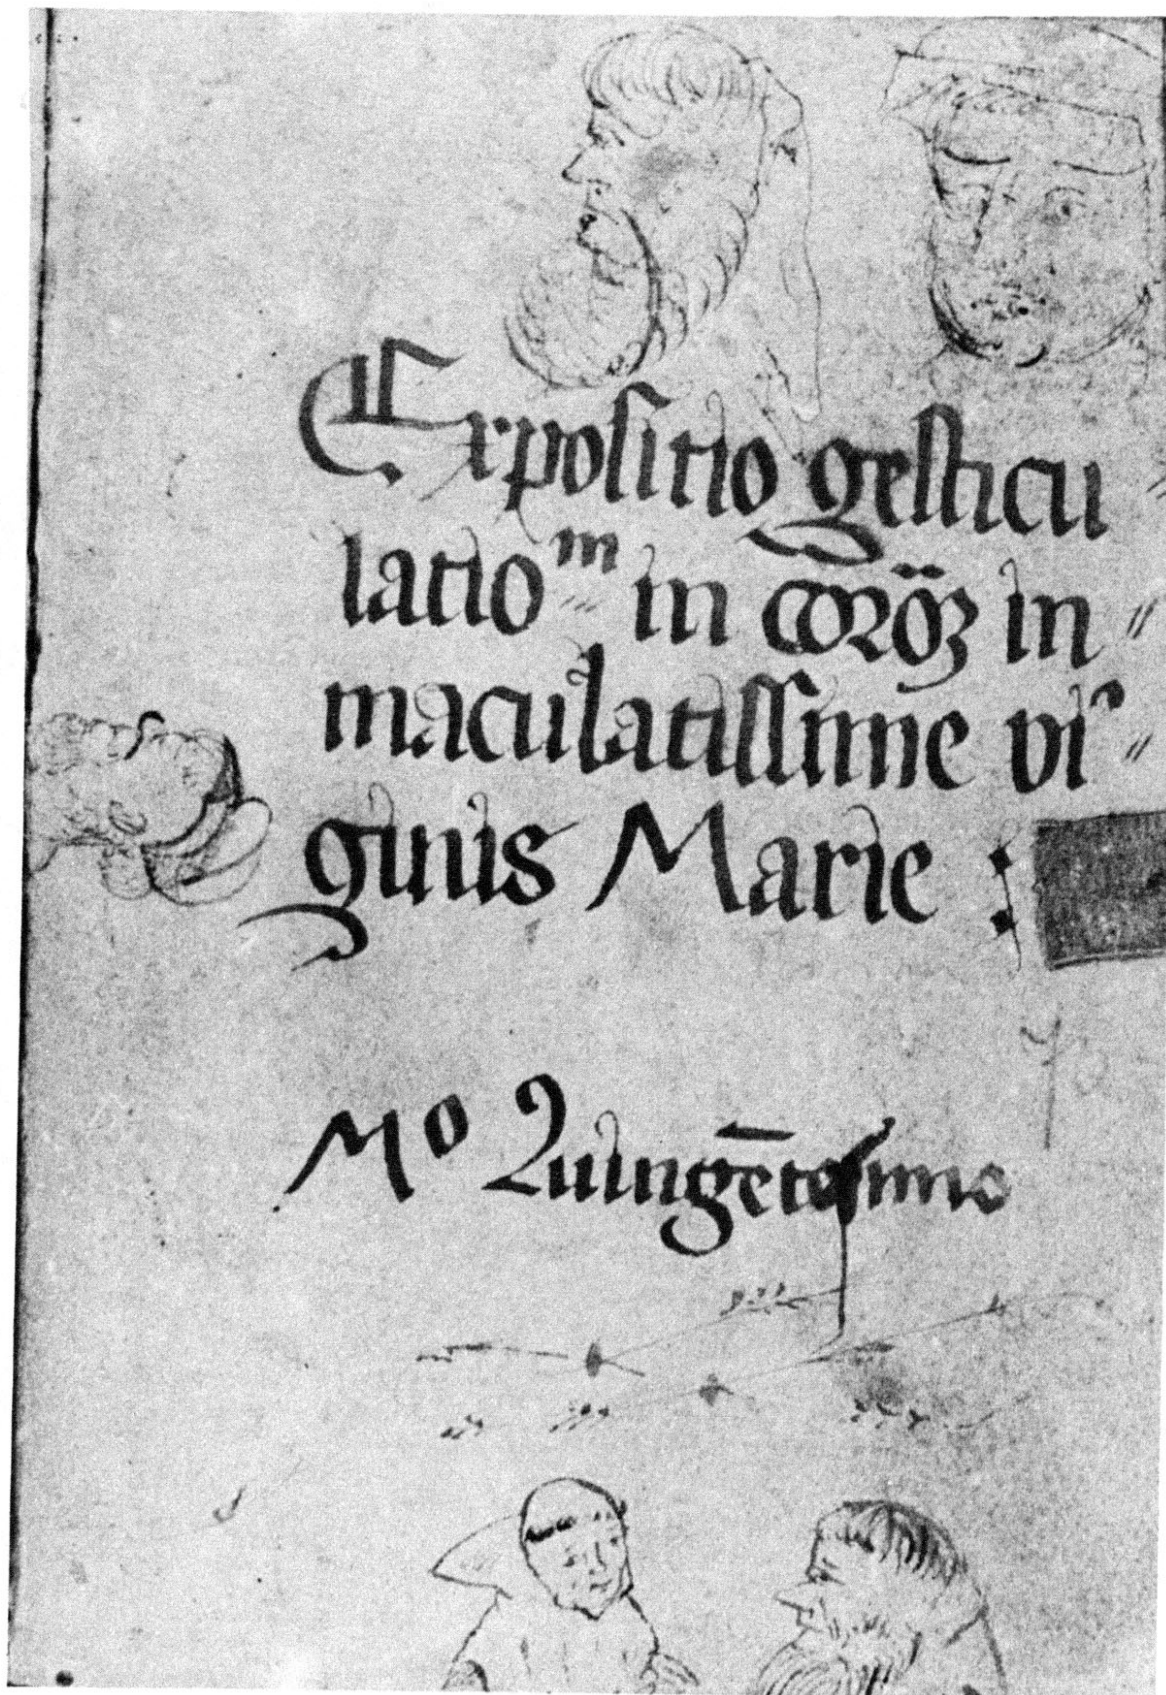 Expositio gesticu
latioᵐ in in
maculatissime viʳ
ginis Marie :
Mᵒ Quingētesimo